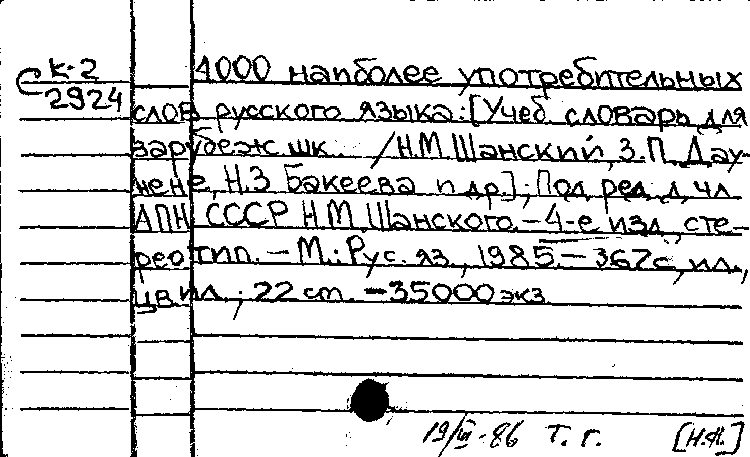 С к-2
2924
4000 наиболее употребительных
слов русского языка: [Учеб. словарь для
зарубеж. шк. /Н.М. Шанский, З.П. Дау-
нене, Н.З. Бакеева и др.]; Под ред. д. чл.
АПН СССР Н.М. Шанского. – 4-е изд., сте-
реотип. – М.: Рус. яз., 1985. – 367 с., ил.,
цв. ил.; 22 см. – 35000 экз.
19/III-86 Т. г. [Н.Я.]